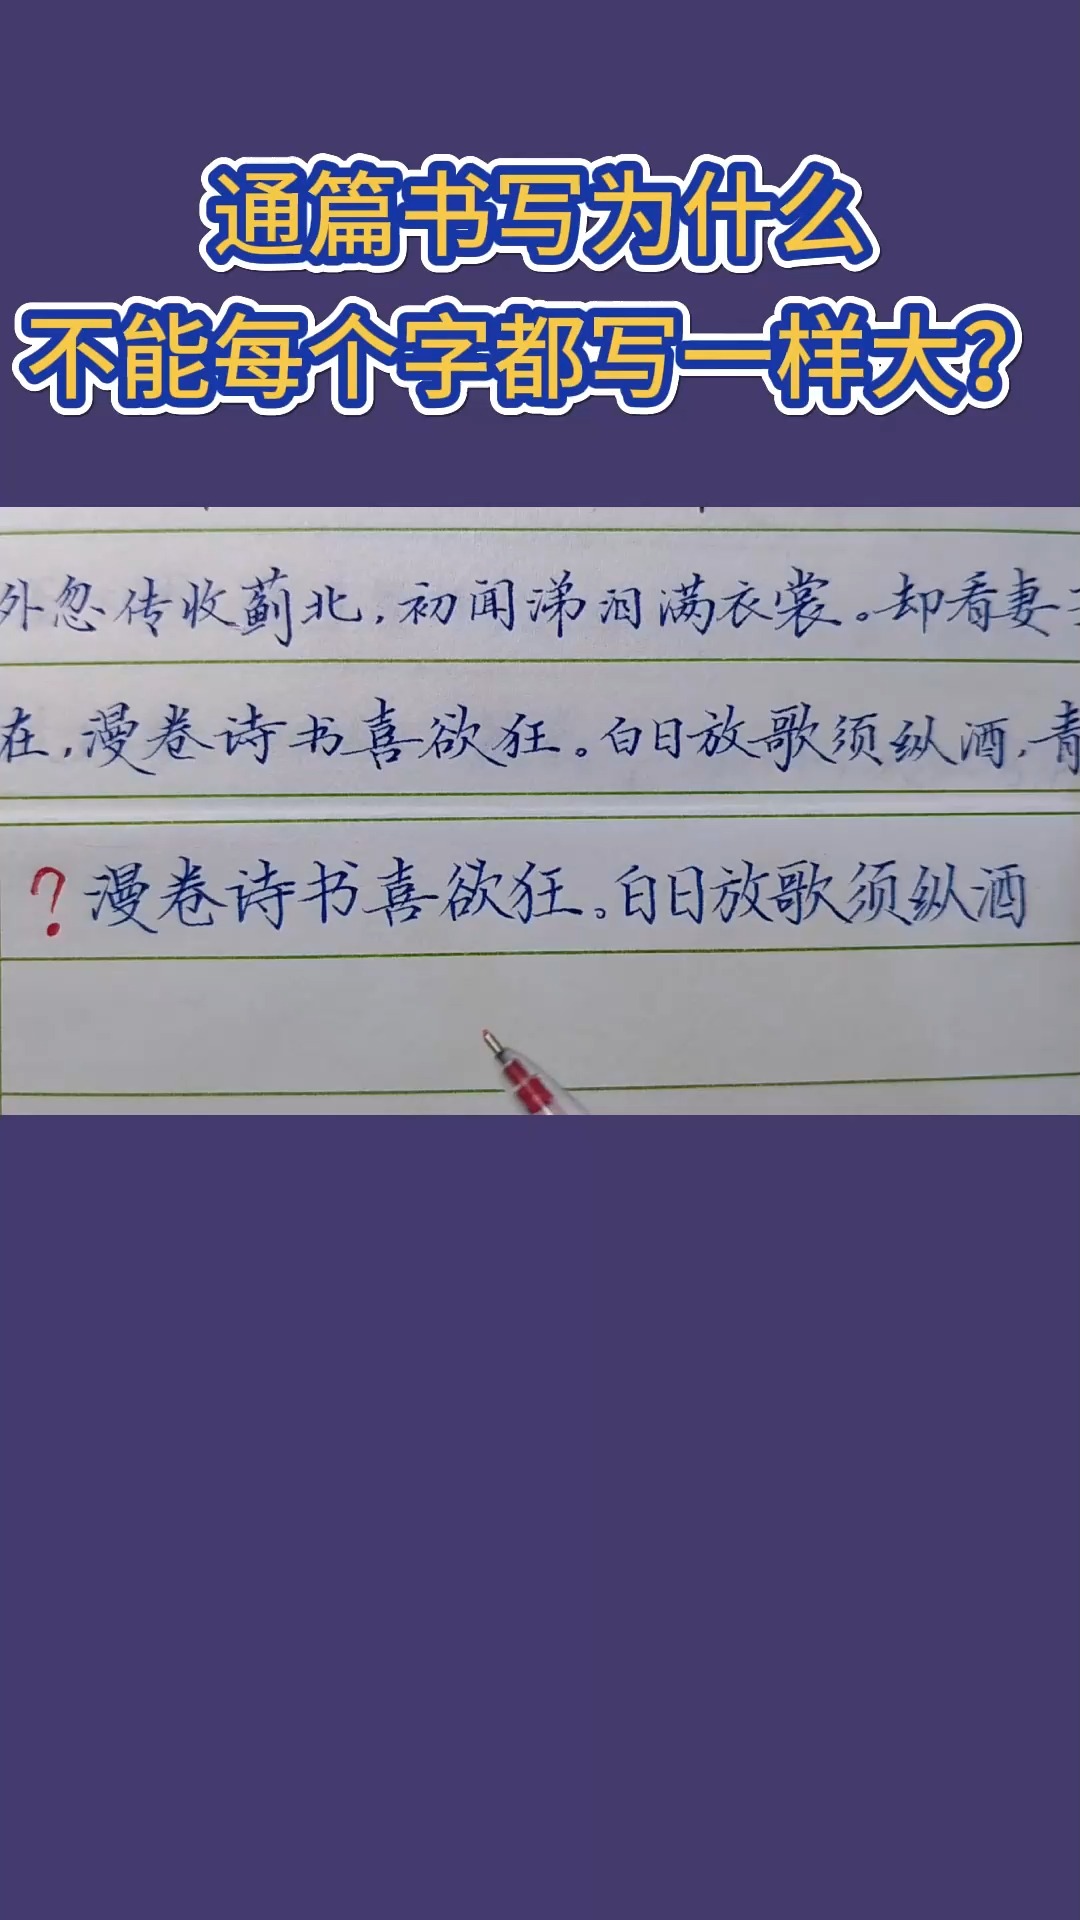 通篇书写为什么
不能每个字都写一样大？
外忽传收蓟北，初闻涕泪满衣裳。却看妻
在，漫卷诗书喜欲狂。白日放歌须纵酒，青
？漫卷诗书喜欲狂。白日放歌须纵酒